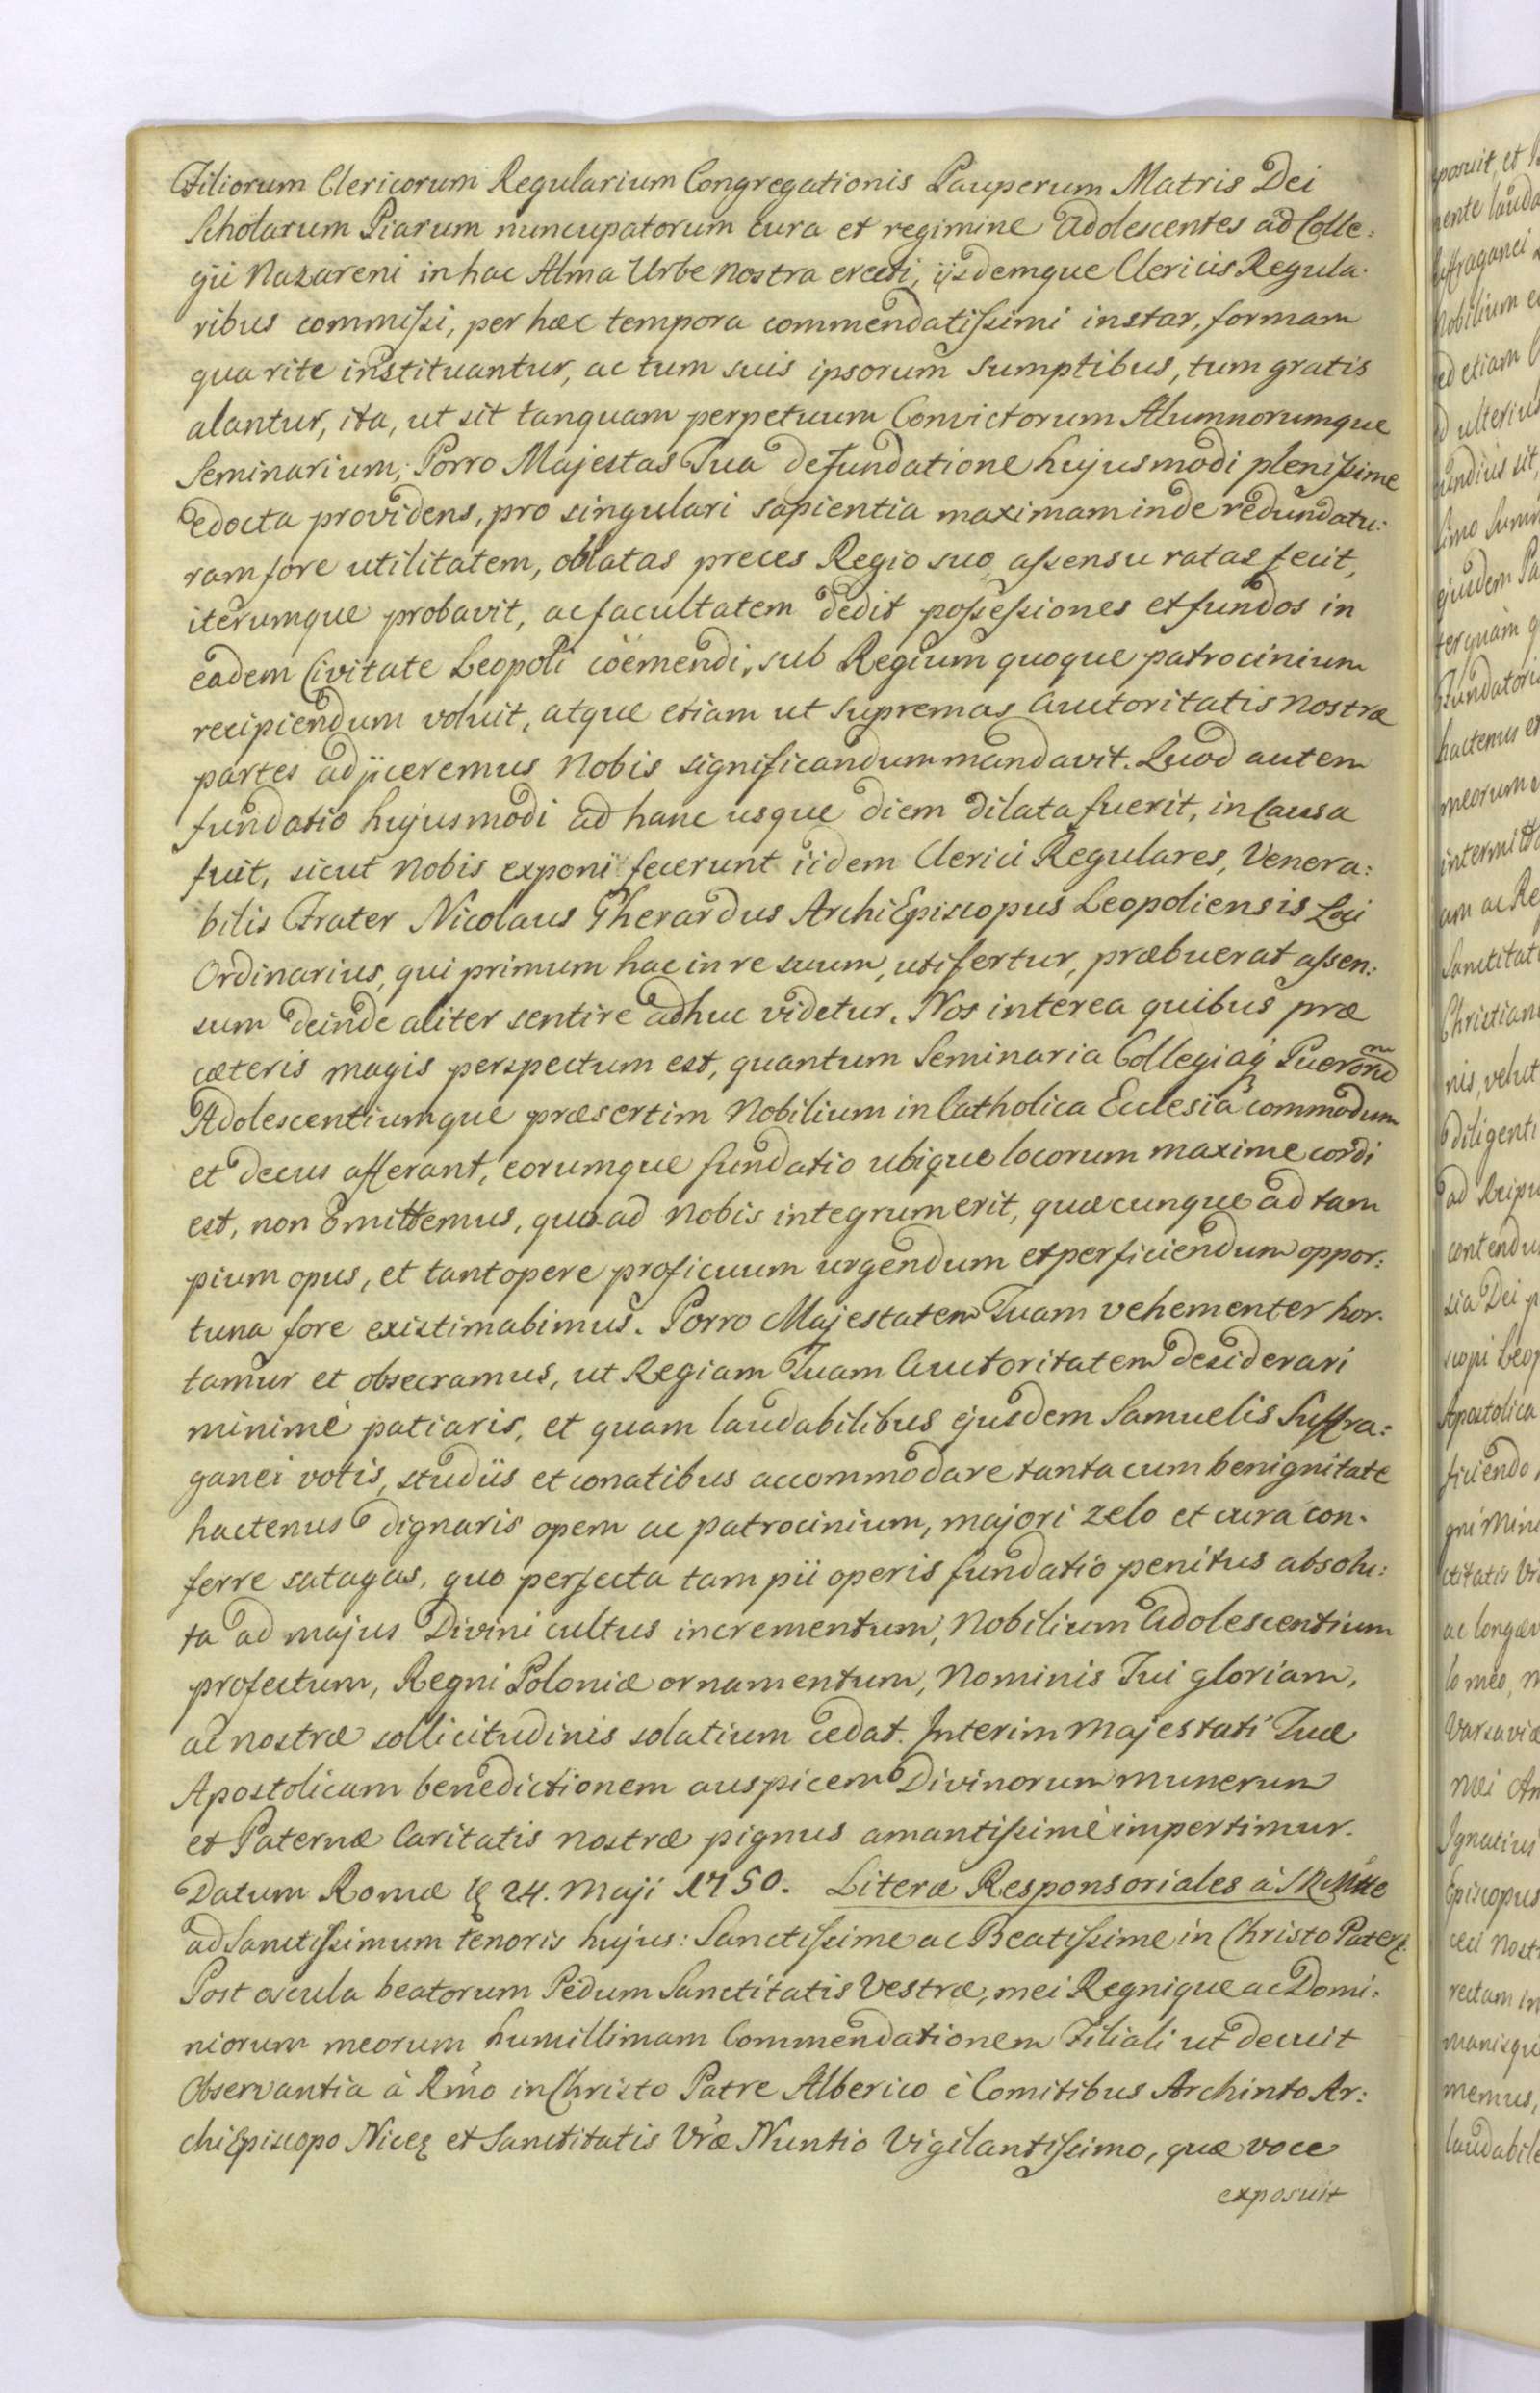 Filiorum Clericorum Regularium Congregationis Pauperum Matris Dei
Scholarum Piarum nuncupatorum cura et regimine Adolescentes ad Colle:
gii Nazareni in hac Alma Urbe nostra erecti, ijsdemque Clericis Regula:
ribus commissi, per hæc tempora commendatissimi instar, formam
qua rite instituantur, ac tum suis ipsorum sumptibus, tum gratis
alantur, ita, ut sit tanquam perpetuum Convictorum Alumnorumque
Seminarium; Porro Majestas Tua de fundatione hujusmodi plenissime
edocta providens, pro singulari sapientia maximam inde redundatu:
ram fore utilitatem, oblatas preces Regio suo assensu ratas fecit,
iterumque probavit, ac facultatem dedit possessiones et fundos in
eadem Civitate Leopoli coëmendi, sub Regium quoque patrocinium
recipiendum voluit, atque etiam ut supremas Auctoritatis nostræ
partes adjiceremus Nobis significandum mandavit. Quod autem
fundatio hujusmodi ad hanc usque diem dilata fuerit, in Causa
fuit, sicut Nobis exponi fecerunt iidem Clerici Regulares, Venera:
bilis Frater Nicolaus Gherardus ArchiEpiscopus Leopoliensis Loci
Ordinarius, qui primum hac in re suum, uti fertur, præbuerat assen:
sum deinde aliter sentire adhuc videtur. Nos interea quibus præ
cæteris magis perspectum est, quantum Seminaria Collegiaq3 Puerorum
Adolescentiumque præsertim Nobilium in Catholica Ecclesia commodum
et decus afferant, eorumque fundatio ubique locorum maxime cordi
est, non omittemus, quoad nobis integrum erit, quæcunque ad tam
pium opus, et tantopere proficuum urgendum et perficiendum oppor:
tuna fore existimabimus. Porro Majestatem Tuam vehementer hor:
tamur et obsecramus, ut Regiam Tuam Auctoritatem desiderari
minimè patiaris, et quam laudabilibus ejusdem Samuelis Suffra:
ganei votis, studiis et conatibus accommodare tanta cum benignitate
hactenus dignaris opem ac patrocinium, majori zelo et cura con:
ferre satagas, quo perfecta tam pii operis fundatio penitus absolu:
ta ad majus Divini cultus incrementum, Nobilium Adolescentium
profectum, Regni Poloniæ ornamentum, Nominis Tui gloriam,
ac nostræ sollicitudinis solatium cedat. Interim Majestati Tuæ
Apostolicam benedictionem auspicem Divinorum munerum
et Paternæ Caritatis nostræ pignus amantissimè impertimur.
Datum Romæ 24. Maji 1750. Literæ Responsoriales à SRMtte
ad Sanctissimum tenoris hujus: Sanctissime ac Beatissime in Christo Pater
Post oscula beatorum Pedum Sanctitatis Vestræ, mei Regnique ac Domi:
niorum meorum humillimam Commendationem Filiali ut decuit
Observantia à Rmo in Christo Patre Alberico è Comitibus Archinto Ar:
chiEpiscopo Niceę et Sanctitatis Vræ Nuntio Vigilantissimo, quæ voce
exposuit